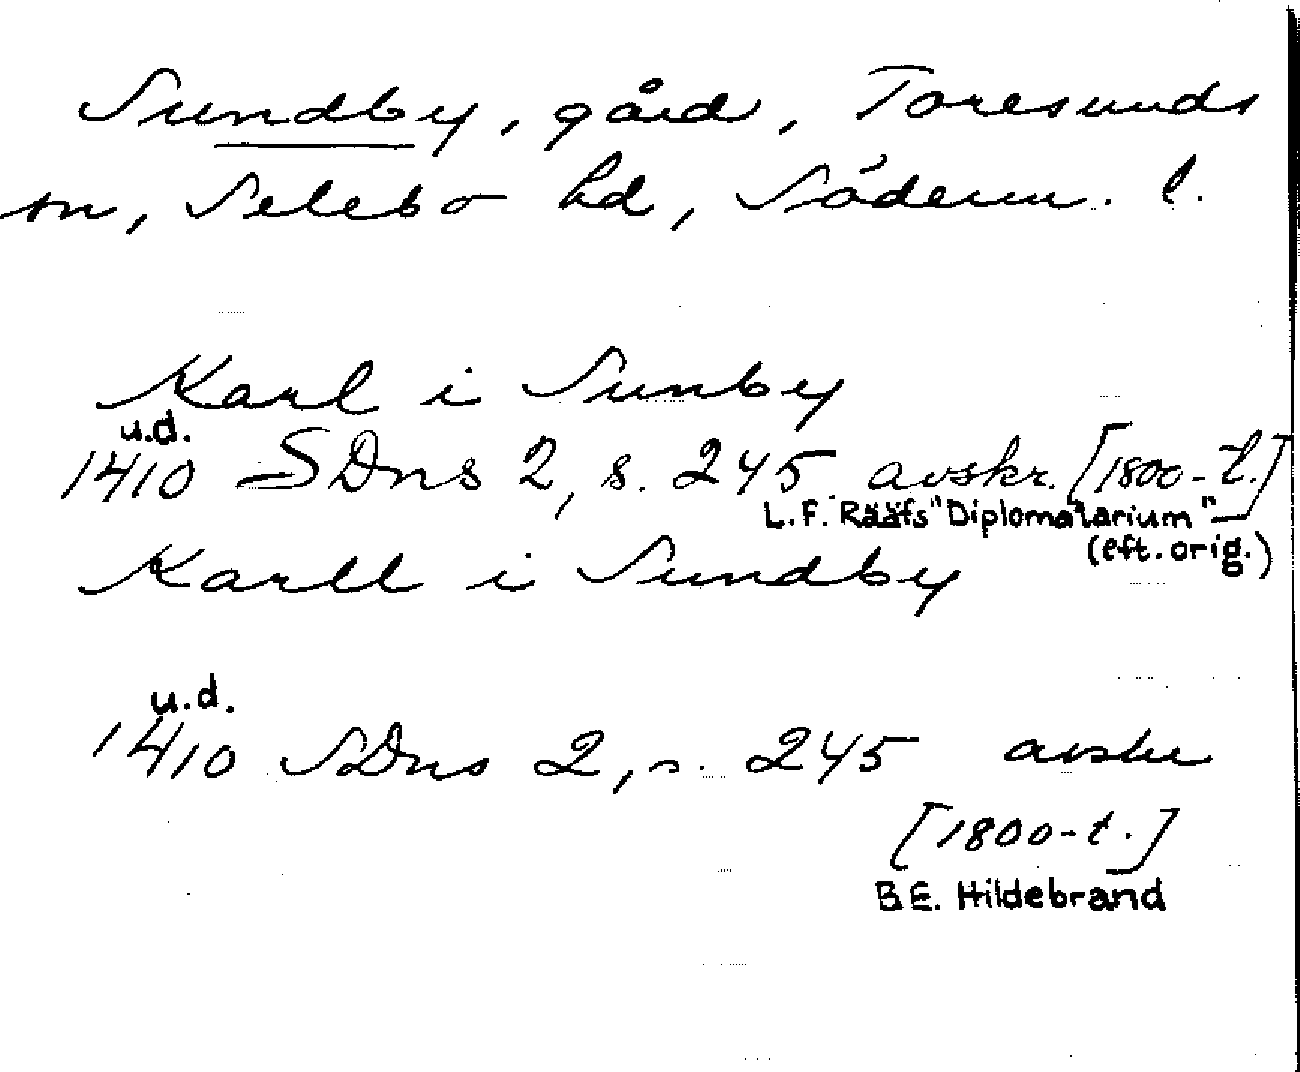 Sundby, gård, Toresunds
sn, Selebo hd, Söderm. l.
Karl i Sunby
u.d.
1410 SDns 2, s. 245 avskr. [1800-t.]
L.F. Rääfs "Diplomatarium"
(eft. orig.)
Karll i Sundby
u.d.
1410 SDns 2, s. 245 avskr
[1800-t.]
B E. Hildebrand